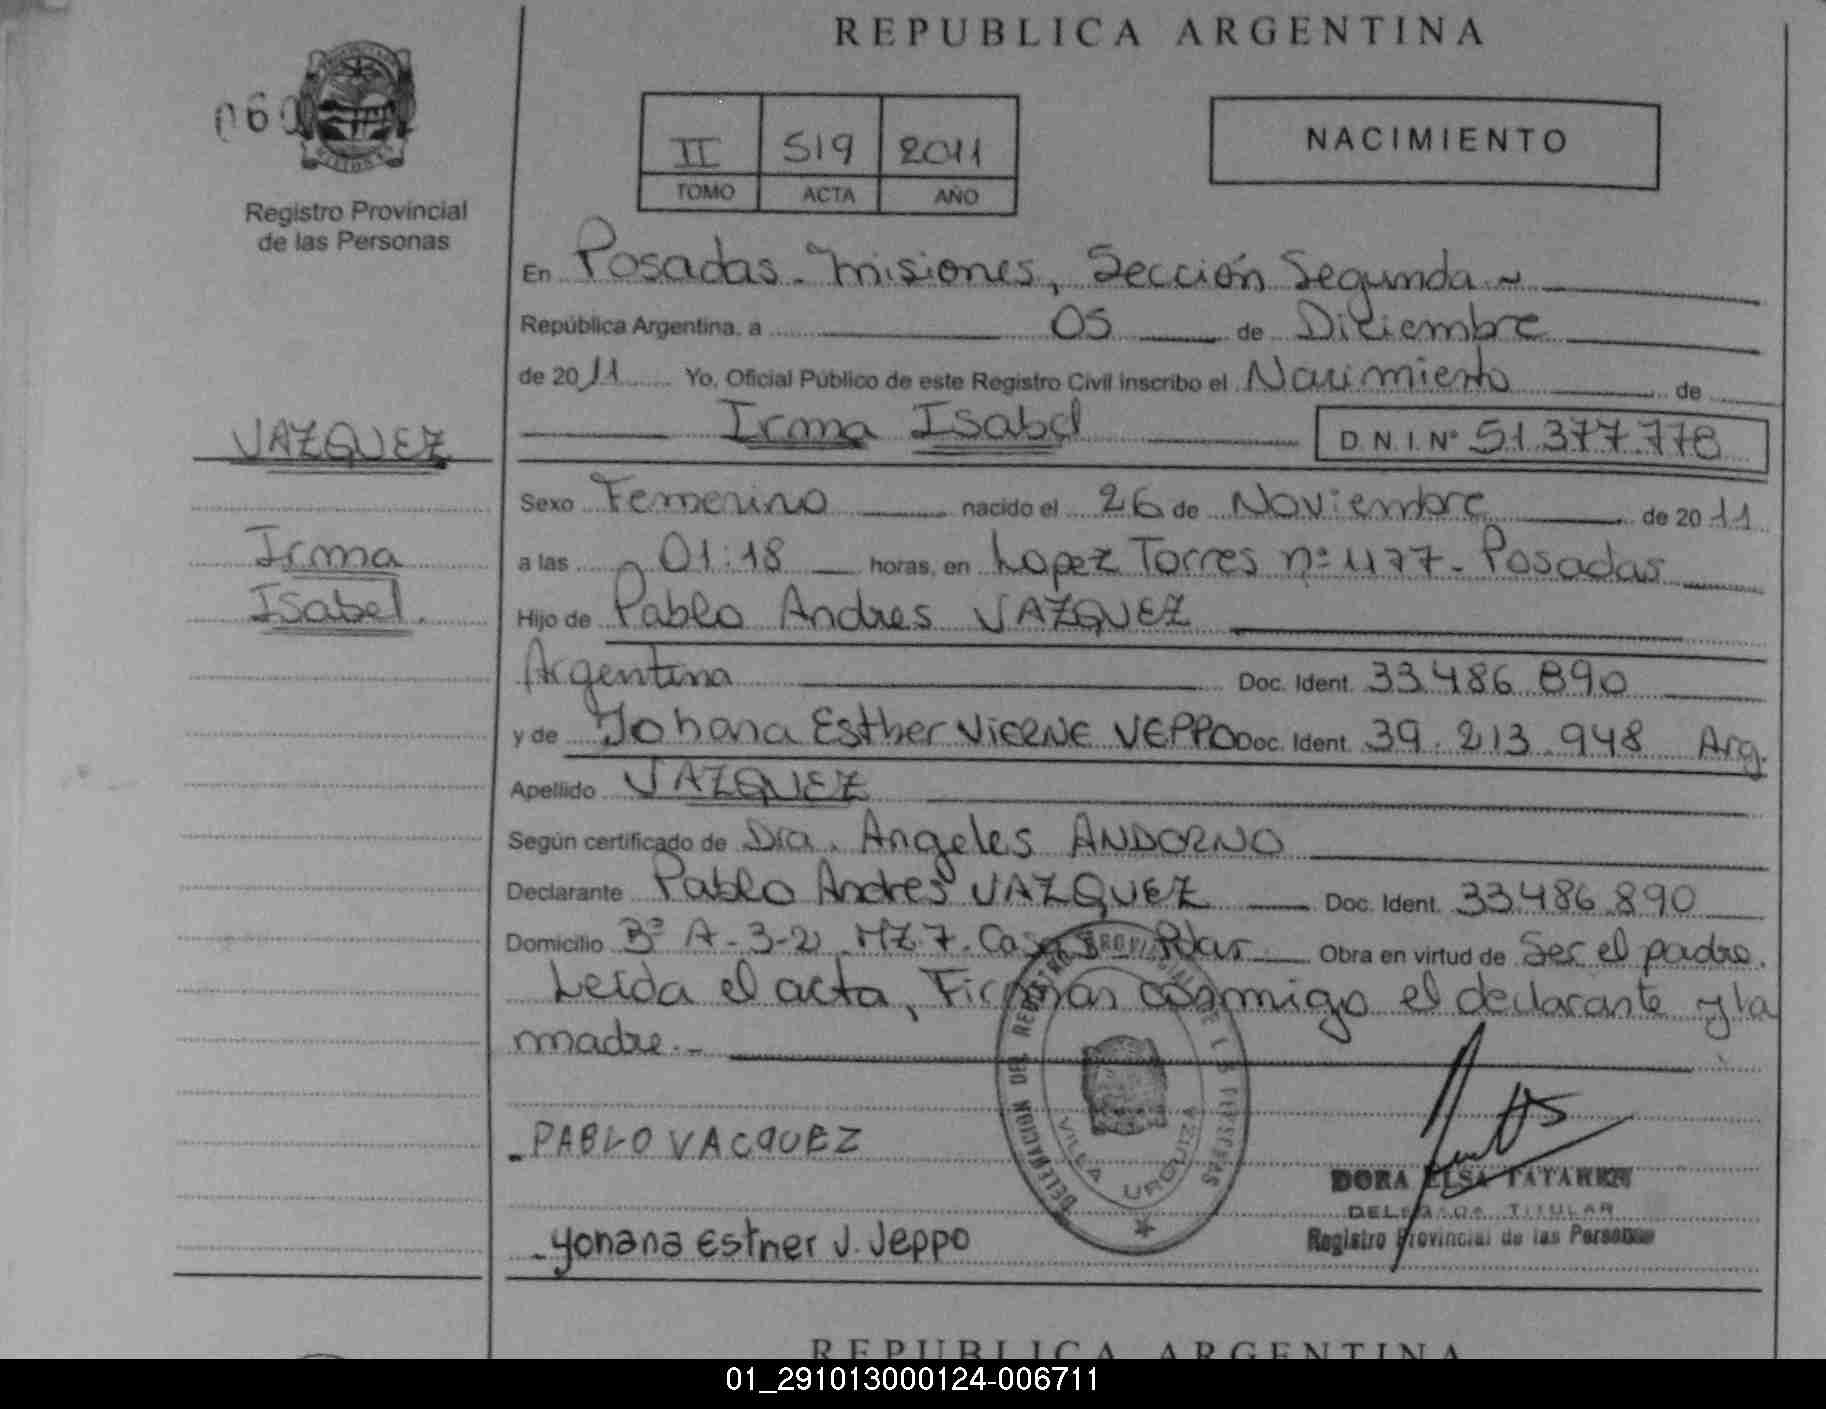 REPUBLICA ARGENTINA
060
MISIONES
Registro Provincial
de las Personas
II 519 2011
TOMO ACTA AÑO
NACIMIENTO
En Posadas - Misiones, Sección Segunda ~
República Argentina, a 05 de Diciembre
de 2011 Yo, Oficial Público de este Registro Civil inscribo el Nacimiento de
Irma Isabel D.N.I. Nº 51.377.778
VAZQUEZ
Irma
Isabel.
Sexo Femenino nacido el 26 de Noviembre de 2011
a las 01:18 horas, en Lopez Torres nº 1177 - Posadas
Hijo de Pablo Andres VAZQUEZ
Argentina Doc. Ident. 33.486.890
y de Johana Esther VIERNE VEPPO Doc. Ident. 39.213.948 Arg.
Apellido VAZQUEZ
Según certificado de Dra. Angeles ANDORNO
Declarante Pablo Andres VAZQUEZ Doc. Ident. 33.486.890
Domicilio Bº A-3-2 MZ 7. Casa Obra en virtud de Ser el padre.
Leída el acta, Firman conmigo el declarante y la
madre. -
- PABLO VACQUEZ
- yohana Esther J. Jeppo
DELEGACION DEL REGISTRO PROVINCIAL DE LAS PERSONAS
VILLA URQUIZA
DORA ELSA
DELEGADA TITULAR
Registro Provincial de las Personas
REPUBLICA ARGENTINA
01_291013000124-006711